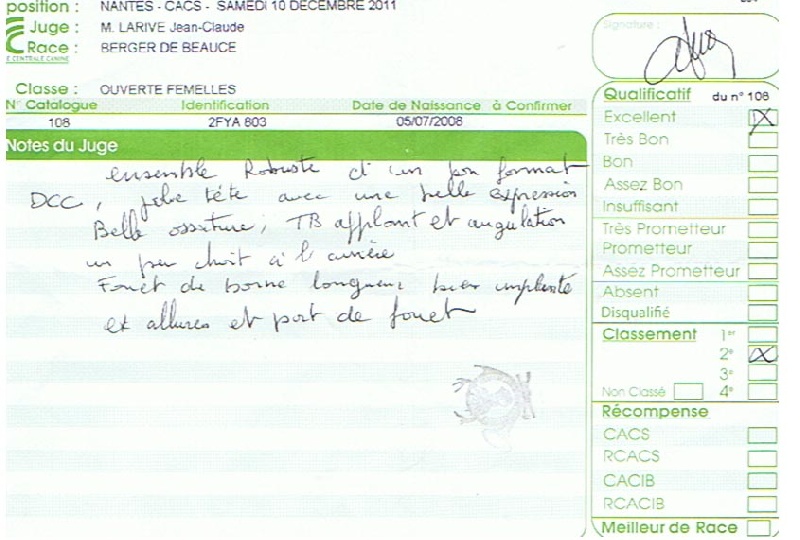 position : NANTES - CACS - SAMEDI 10 DECEMBRE 2011
Juge : M. LARIVE Jean-Claude
Race : BERGER DE BEAUCE
E CENTRALE CANINE
Signature :
Classe : OUVERTE FEMELLES
N° Catalogue Identification Date de Naissance à Confirmer
108 2FYA 803 05/07/2008
Notes du Juge
ensemble Robuste d'un bon format
DCC, jolie tête avec une belle expression
Belle ossature, TB applont et angulation
un peu droit à l'arrière
Fouet de bonne longueur bien implanté
ex allures et port de fouet
Qualificatif du n° 108
Excellent X
Très Bon
Bon
Assez Bon
Insuffisant
Très Prometteur
Prometteur
Assez Prometteur
Absent
Disqualifié
Classement 1er
2e X
3e
Non Classé 4e
Récompense
CACS
RCACS
CACIB
RCACIB
Meilleur de Race